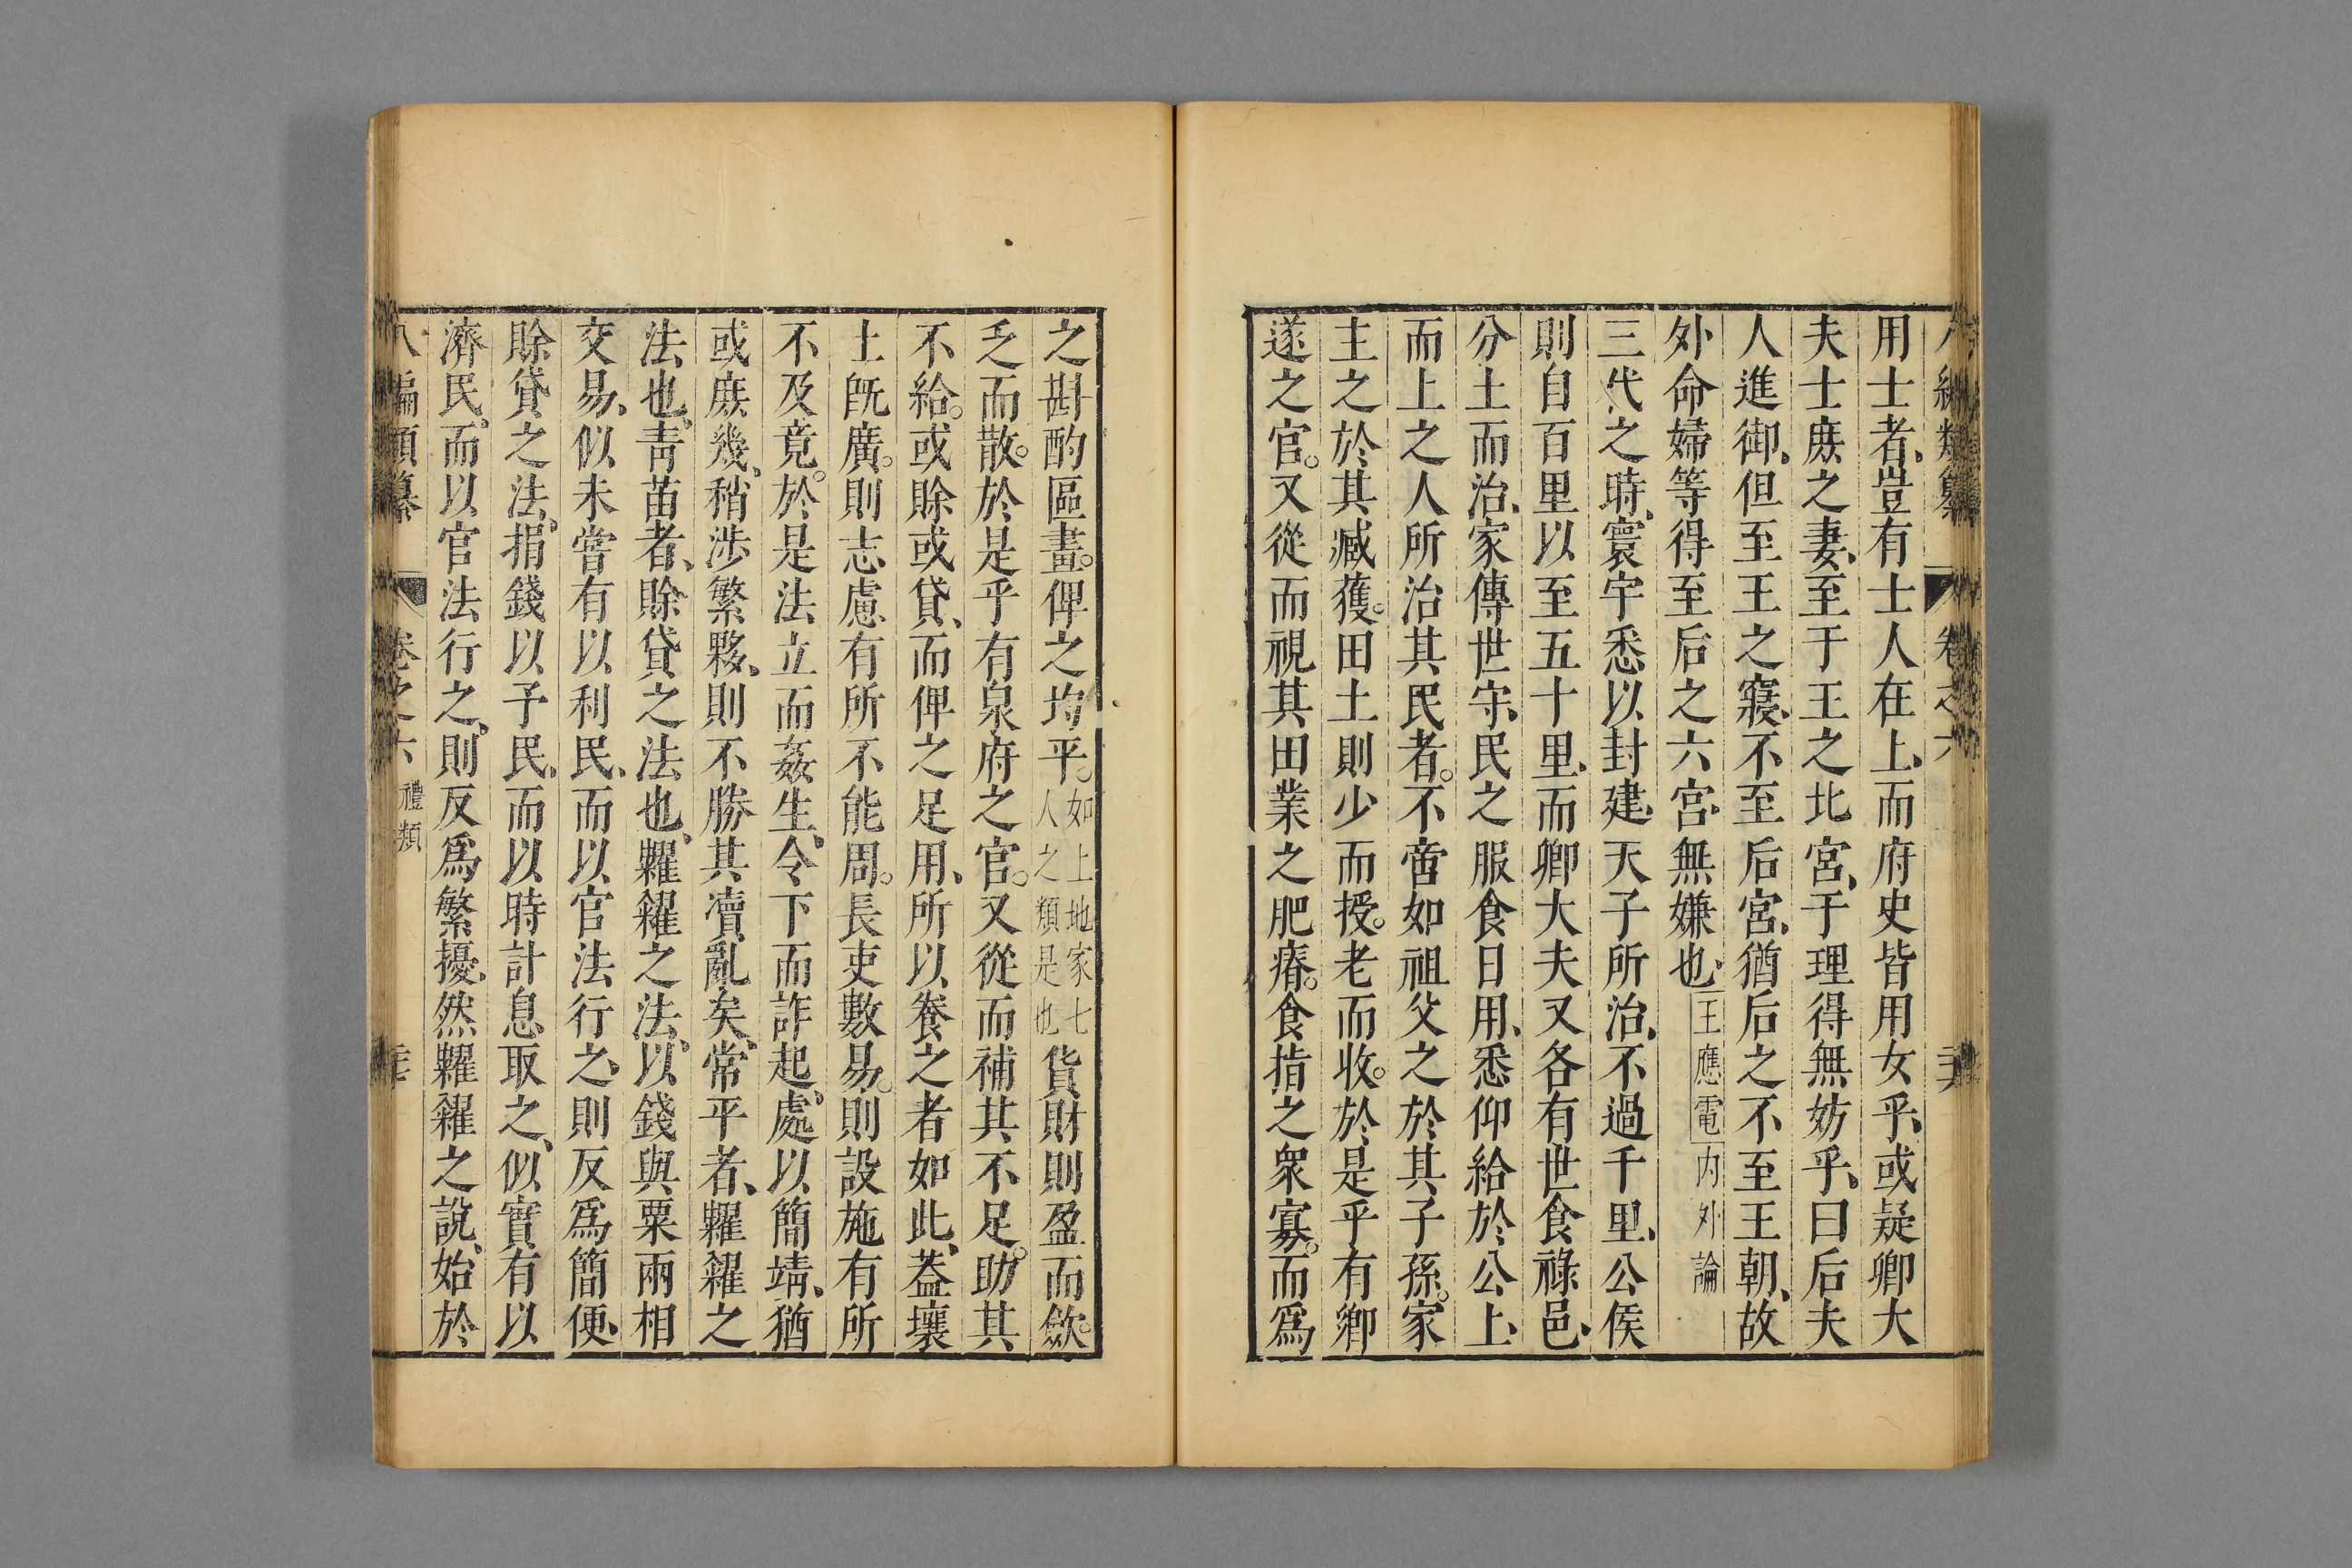 用士者、豈有士人在上、而府史皆用女乎、或疑卿大
夫士庻之妻、至于王之北宮、于理得無妨乎、曰后夫
人進御、但至王之寢、不至后宮、猶后之不至王朝、故
外命婦等得至后之六宮、無嫌也、王應電内外論
三代之時、寰宇悉以封建、天子所治、不過千里、公侯
則自百里以至五十里、而卿大夫又各有世食祿邑、
分土而治、家傳世守、民之服食日用、悉仰給於公上、
而上之人所治其民者。不啻如祖父之於其子孫。家
主之於其臧獲。田土則少而授。老而收。於是乎有鄉
遂之官。又從而視其田業之肥瘠。食指之衆寡。而爲
之斟酌區畫。俾之均平。如上地家七人之類是也貨財則盈而歛。
乏而散。於是乎有泉府之官。又從而補其不足。助其
不給。或賖或貸、而俾之足用、所以養之者如此、葢壤
土旣廣。則志慮有所不能周。長吏數易。則設施有所
不及竟。於是法立而姦生、令下而詐起、處以簡靖、猶
或庻幾、稍涉繁夥、則不勝其凟亂矣、常平者、糶糴之
法也、靑苗者、賖貸之法也、糶糴之法、以錢與粟兩相
交易、似未嘗有以利民、而以官法行之、則反爲簡便、
賖貸之法、捐錢以予民、而以時計息取之、似實有以
濟民、而以官法行之、則反爲繁擾、然糶糴之說、始於
八編類纂 卷之六 禮類